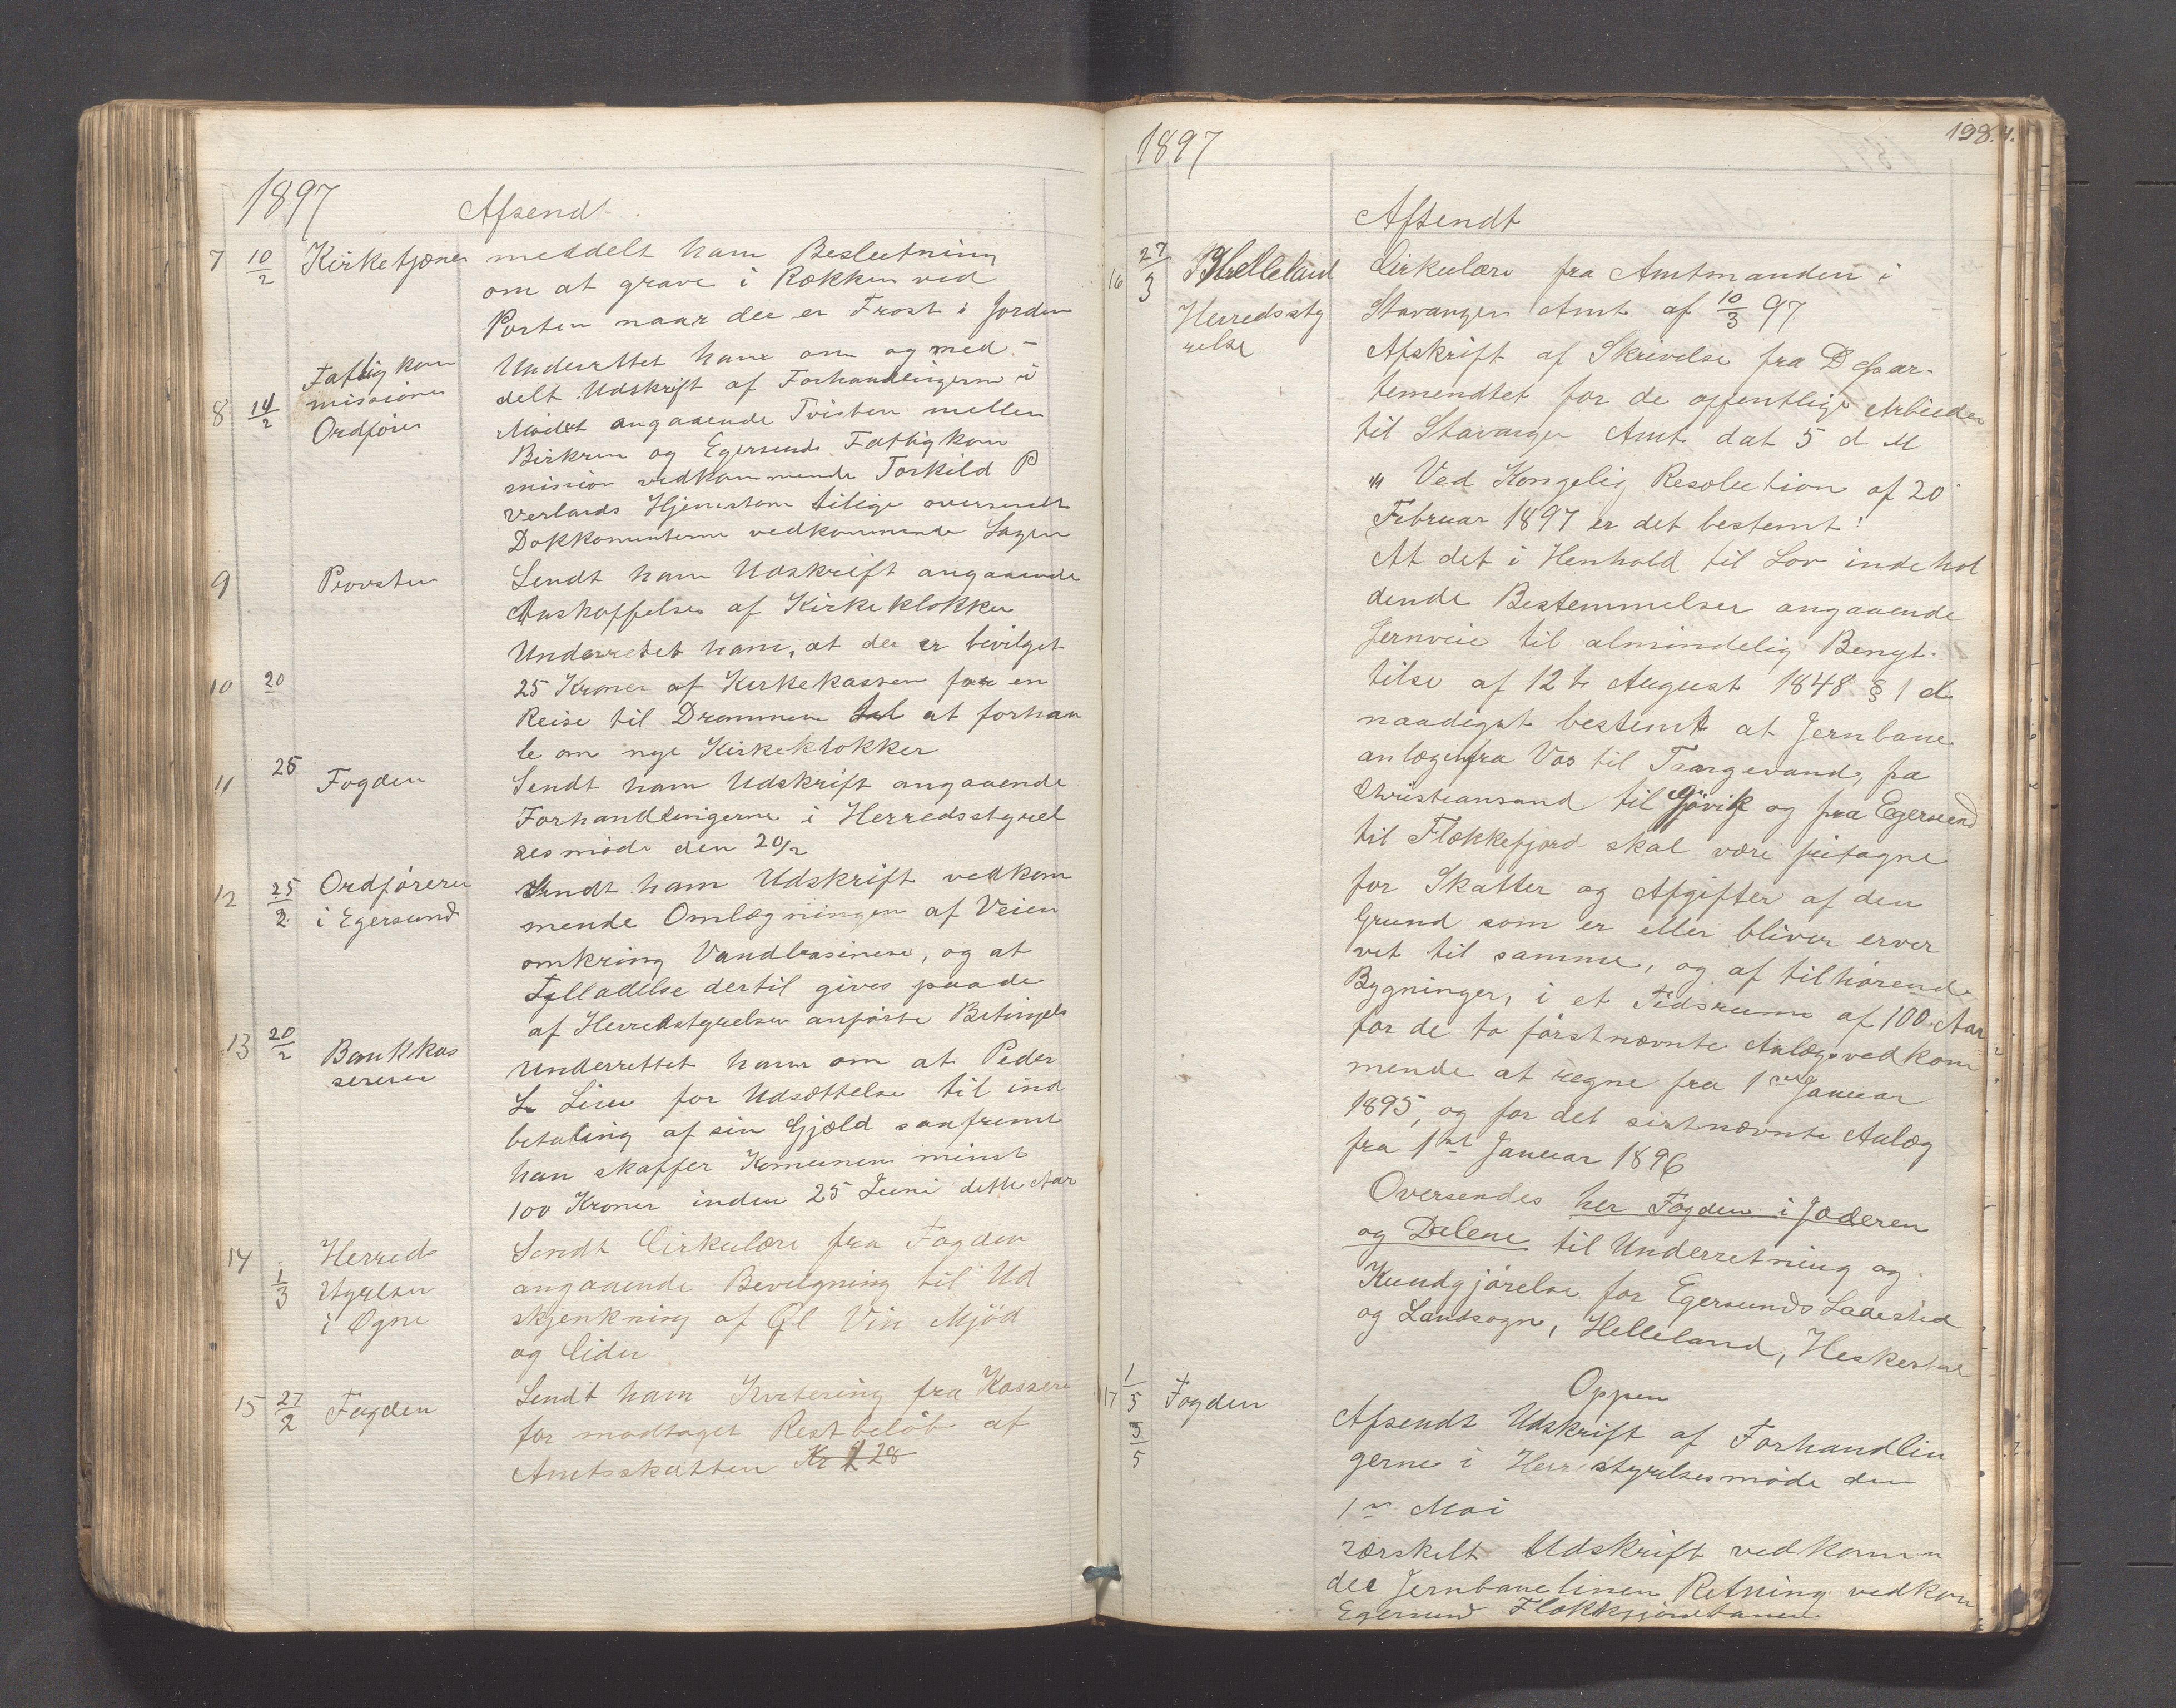 1897
Afsendt
7 10/2 Kirketjener meddelt ham Beslutning
om at grave i Rækken ved
Porten naar der er Frost i Jorden
Fattigkom
missionens
8 14/2 Ordfører
Underrettet ham om og med-
delt Udskrift af Forhandlingerne i
Mødet angaaende Tvisten mellem
Birkrem og Egersunds Fattigkom
mission vedkommende Torkild P
verlands Hjemstavn tillige oversendt
Dokkomenterne vedkommende Sagen
9 Provsten Sendt ham Udskrift angaaende
Anskaffelse af Kirkeklokker
Underretet ham, at der er bevilget
10 20 25 Kroner af Kirkekassen for en
Reise til Drammen at forhan
le om nye Kirkeklokker
11 25 Fogden Sendt ham Udskrift angaaende
Forhandlingerne i Herredsstyrel
sesmøde den 20/2
12 25/2 Ordføreren Sendt ham Udskrift vedkom
i Egersund mende Omlægningen af Veien
omkring Vandbasinene, og at
Tilladelse dertil gives paa de
af Herredstyrelsen anførte Betingels
13 20/2 Bankkas
sereren
Underrettet ham om at Peder
L Lien for Udsættelse til ind
betaling af sin Gjæld saafremt
han skaffer Komunen minst
100 Kroner inden 25 Juni dette Aar
14 1/3 Herreds
styrelsen
i Ogne
Sendt Cirkulære fra Fogden
angaaende Bevilgning til Ud
skjenkning af Øl Vin Mjød
og Cider
15 27/2 Fogden Sendt ham Kvitering fra Kassere
for modtaget Restbeløb af
Amtsskatten Kr 2 28
1897
198.
Afsendt
16 27/3 Helleland
Herredssty
relse
Cirkulære fra Amtmanden i
Stavanger Amt af 10/3 97
Afskrift af Skrivelse fra Depar-
temendtet for de offentlige Arbeider
til Stavanger Amt dat 5 d M
" Ved Kongelig Resolution af 20
Februar 1897 er det bestemt:
At det i Henhold til Lov indehol
dende Bestemmelser angaaende
Jernveie til almindelig Benyt-
telse af 12te August 1848 § 1 d
naadigst bestemt at Jernbane
anlægen fra Vos til Taugevand, fra
Christiansand til og fra Egersund
til Flekkefjord skal være fritagne
for Skatter og Afgifter af den
Grund som er eller bliver erver
vet til samme, og af tilhørende
Bygninger, i et Tidsrum af 100 Aar
for de to førstnævnte Anlægs vedkom
mende at regne fra 1st Januar
1895, og for det sistnævnte Anlæg
fra 1st Januar 1896
Oversendes her Fogden i Jæderen
og Dalene til Underretning og
Kundgjørelse for Egersunds Ladested
og Landsogn, Helleland, Heskestad
Oppen
17 1/5 Fogden Afsendt Udskrift af Forhandlin
3/5 gerne i Herrstyrelsesmøde den
1ste Mai
særskilt Udskrift vedkomm
der Jernbanelinen Retning vedkom
Egersund Flekkefjordbanen